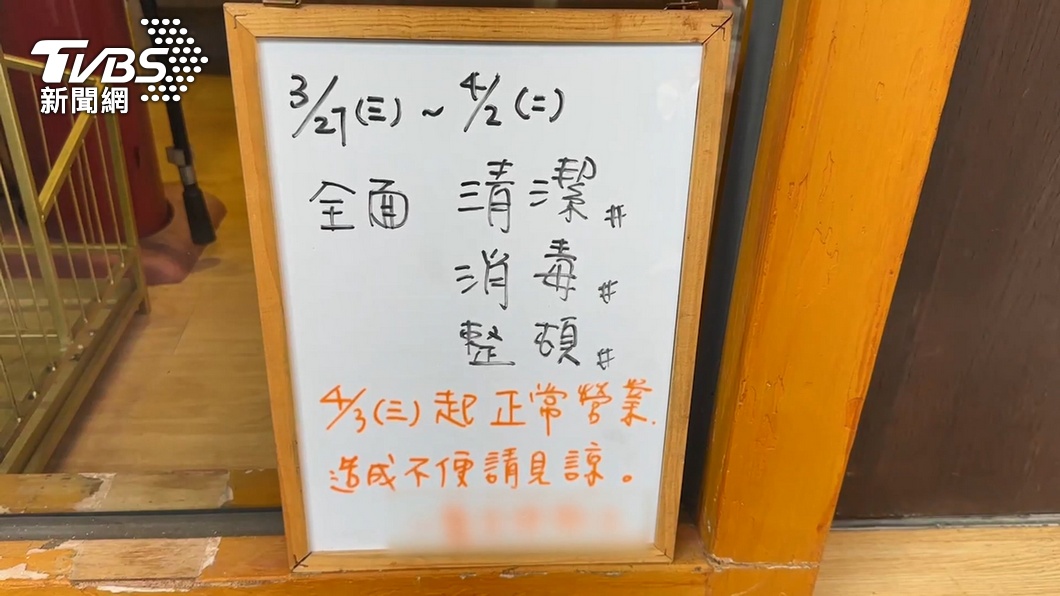 TVBS
新聞網
3/27(三)~4/2(二)
全面 清潔#
消毒#
整頓#
4/3(三)起正常營業.
造成不便請見諒。